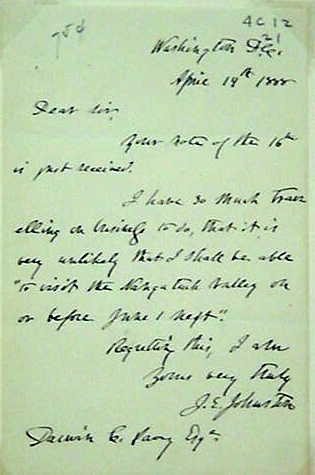 75¢
4C12
21
Washington D.C.
April 14th 1888
Dear Sir,
Your note of the 16th
is just received.
I have so much trav
elling on business to do, that it is
very unlikely that I shall be able
"to visit the Naugatuck Valley on
or before June 1 next".
Regretting this, I am
Yours very truly
J. E. Johnston
Darwin C. Esqr